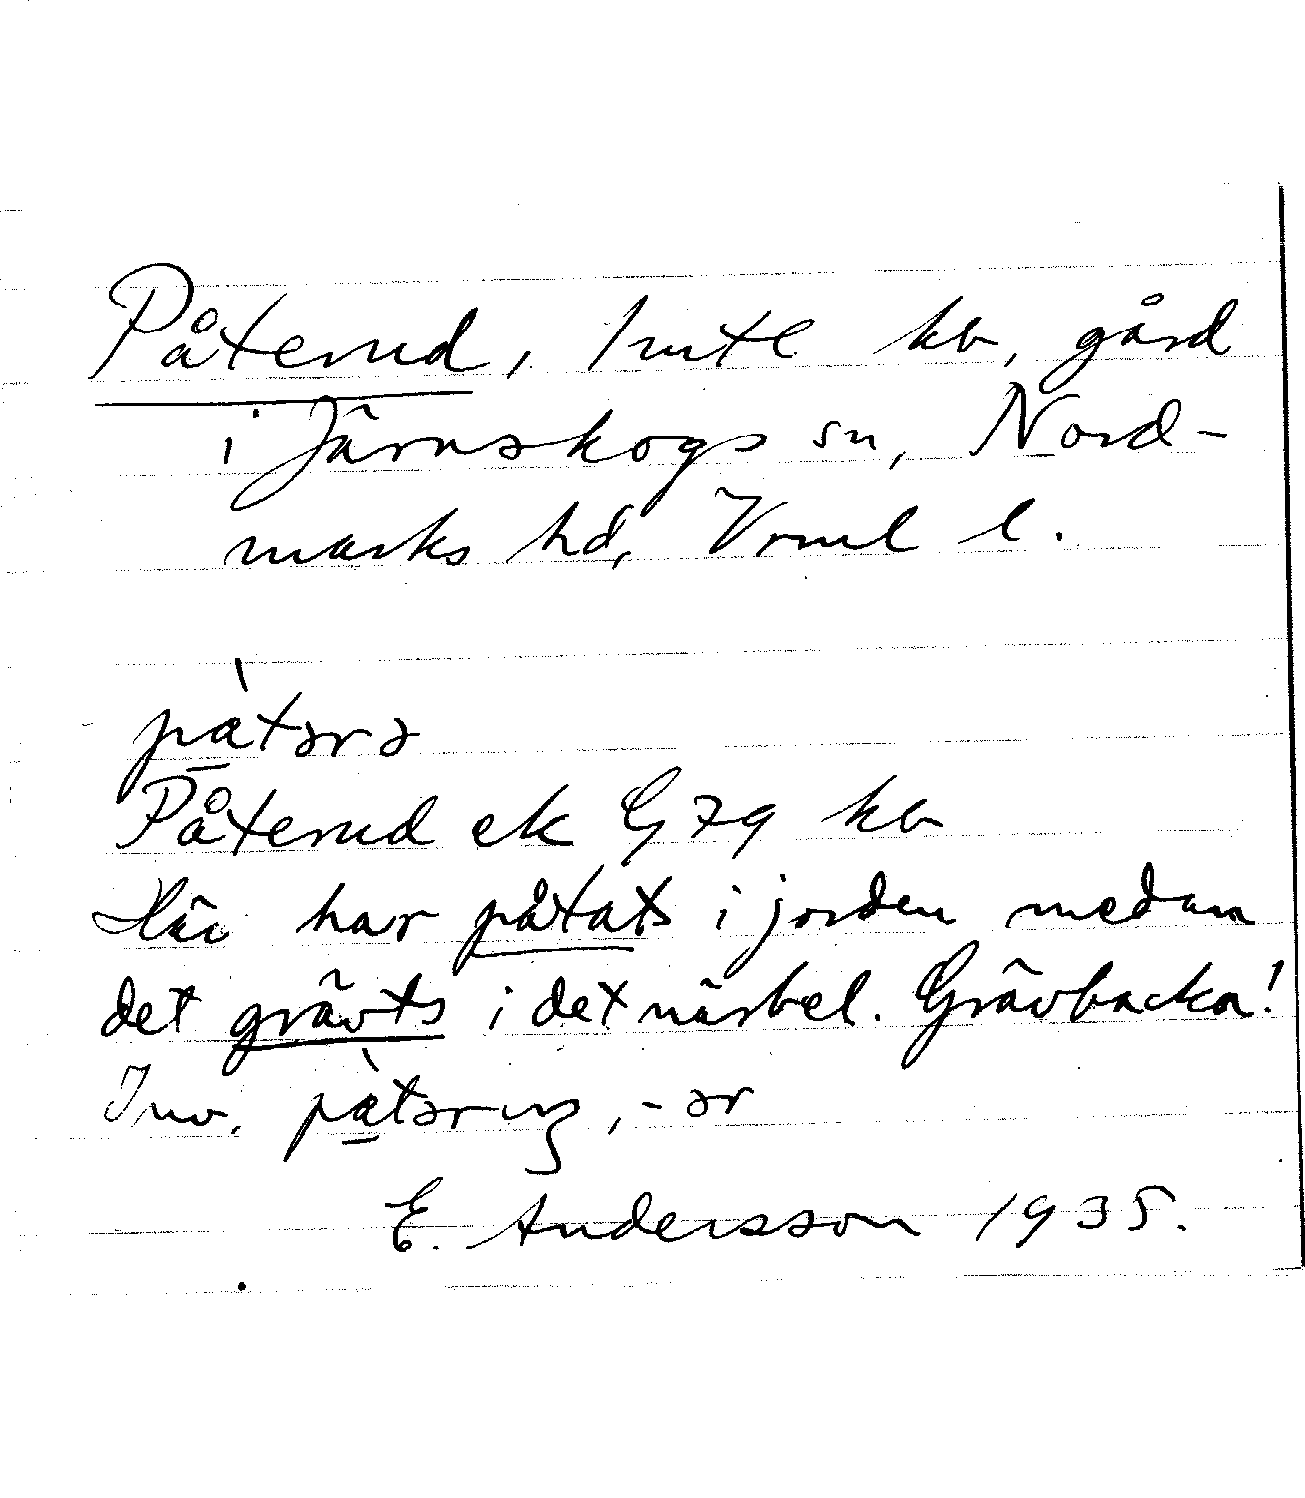 Påterud, 1 mtl kb, gård
i Järnskogs sn, Nord-
marks hd, Vrml l.
pàtərə
Påterud ek G79 kb
Här har påtats i jorden medan
det grävts i det närbel. Grävbacka!
Inv. pàtərıŋ, -ər
E. Andersson 1935.